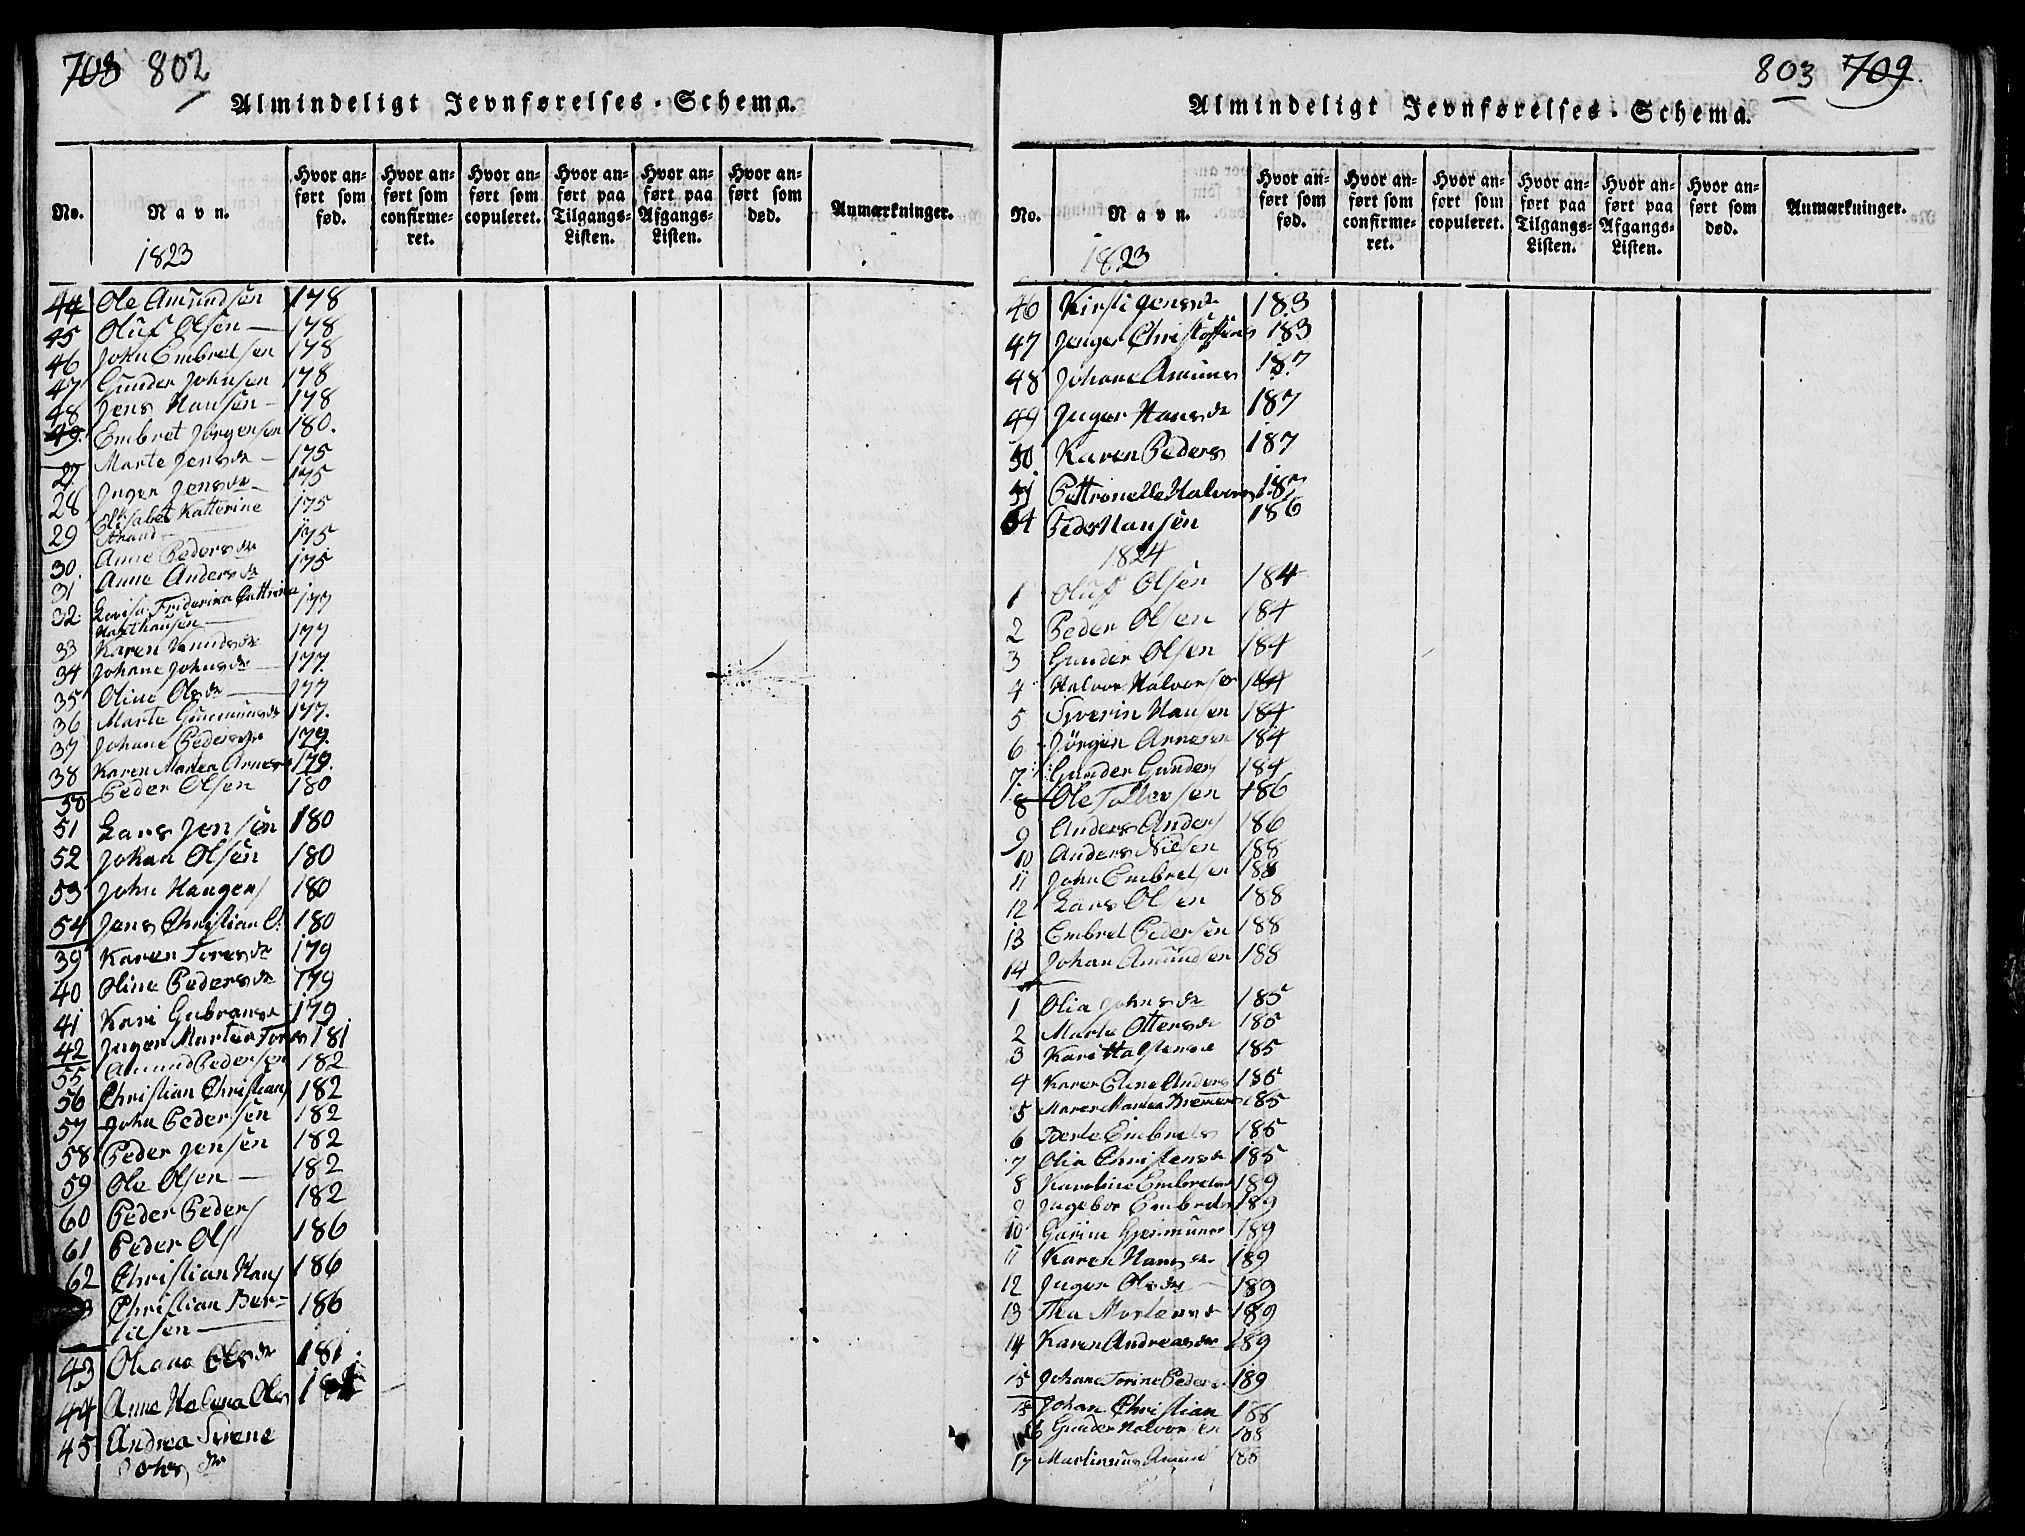 708 802
Almindeligt Jevnførelses-Schema.
No. Navn. Hvor anført som fød. Hvor anført som confirmeret. Hvor anført som copuleret. Hvor anført paa Tilgangs-Listen. Hvor anført paa Afgangs-Listen. Hvor anført som død. Anmærkninger.
1823
44 Ole Amundsen 178
45 Oluf Olsen 178
46 John Embretsen 178
47 Gunder Johnsen 178
48 Jens Hansen 178
49. Embret Jørgensen 180.
27 Marte Jensdr 175
28 Inger Jensdr 175
29 Elisabet Katterine 175
Strand
30 Anne Pedersdr 175
31 Anne Andersdr 175
32 Lovisa Friderica Cattrina 177
Haxthausen
33 Karen Knudsdr 177
34 Johane Johnsdr 177.
35 Oline Olsdr 177
36 Marte Gunmunsdr 177.
37 Johane Pedersdr 179.
38 Karen Martea Arnes 179.
50 Peder Olsen 180
51 Lars Jensen 180
52 Johan Olsen 180
53 John Haagens 180
54 Jens Christian O: 180
39 Karen Toresdr 179
40 Oline Pedersdr 179
41 Kari Gubransdr 179
42 Inger Martea Tores 181
55 Amund Pedersen 182
56 Christian Christians 182
57 John Pedersen 182
58 Peder Jensen 182
59 Ole Olsen 182
60 Peder Peders 182
61 Peder Ols 186
62 Christian Hans 186
Christian Ber= 186
tilsen
43 Olvava Olsdr 181
44 Anne Helena Ols
45 Andrea Sirene
Johsdr
803 709
Almindeligt Jevnførelses-Schema.
No. Navn. Hvor anført som fød. Hvor anført som confirmeret. Hvor anført som copuleret. Hvor anført paa Tilgangs-Listen. Hvor anført paa Afgangs-Listen. Hvor anført som død. Anmærkninger.
1823
46 Kirsti Jensdr 183
47 Inger Christoffers 183
48 Johane Amunds 187
49 Inger Hansdr 187
50 Karen Peders 187
51 Pettronelle Halvors 187
64 Peder Hansen 186
1824
1 Oluf Olsen 184
2 Peder Olsen 184
3 Gunder Olsen 184
4 Halvor Halvorsen 184
5 Syverin Hansen 184
6 Jörgen Arnesen 184
7 Gunder Gunders 184
8 Ole Tollersen 186
9 Anders Anders 186
10 Anders Nilsen 188
11 John Embretsen 188
12 Lars Olsen 188
13 Embret Pedersen 188
14 Johan Amundsen 188
1 Olia Johnsdr 185
2 Marte Ottersdr 185
3 Kari Halstensdr 185
4 Karen Eline Anders 185
5 Maren Martea Bremer 185
6 Berte Embrets 185
7 Olia Christensdr 185
8 Karoline Embretsd 189
9 Ingebor Embrets 189
10 Gurine Gjermuns 189
11 Karen Hansdr 189
12 Inger Olsdr 189
13 Thea Mortensdr 189
14 Karen Andreasdr 189
15 Johane Torine Peders 189
15 Johan Christian 188
16 Gunder Halvorsen 188
17 Martinius Amund 188